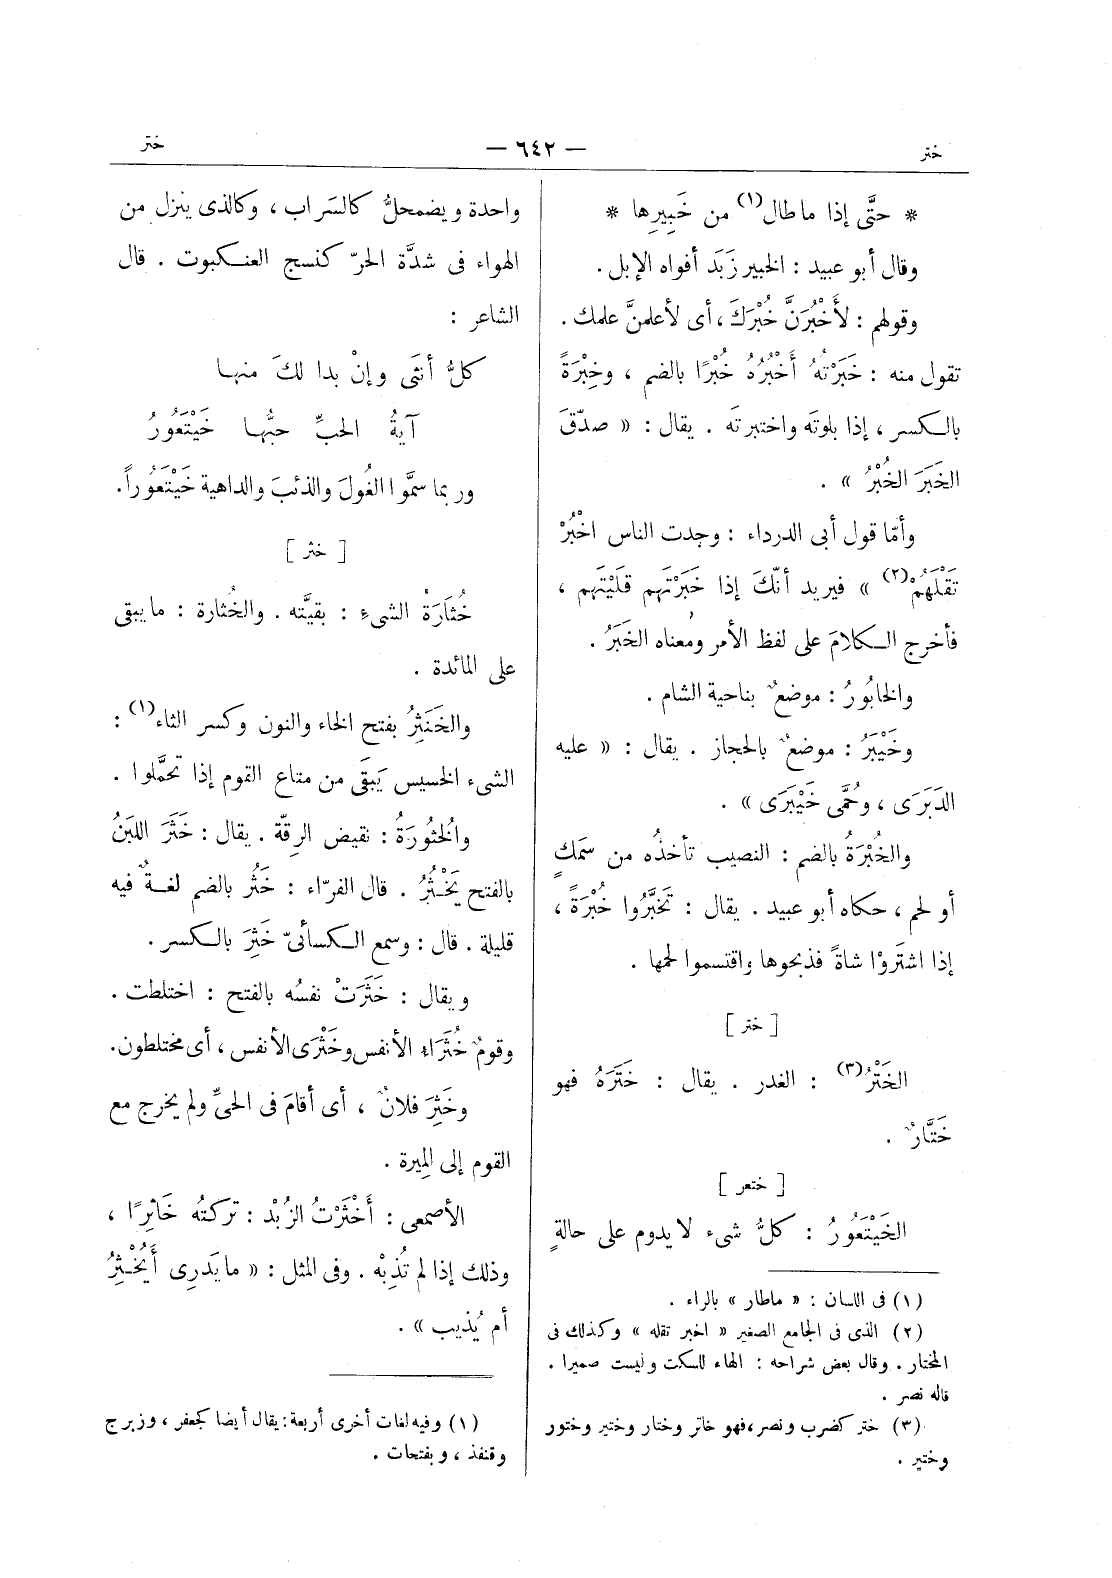 ختر
— ٦٤٢ —
ختر
* حتَّى إذا ما طال(١) من خَبِيرِها *
وقال أبو عبيد : الخبير زَبَد أفواه الإبل .
وقولهم : لأَخْبُرَنَّ خُبْرَكَ ، أى لأعلمنَّ علمك .
تقول منه : خَبَرْتهُ أَخْبُرُهُ خُبْرًا بالضم ، وخِبْرَةً
بالكسر ، إذا بلوتَه واختبرتَه . يقال : « صدّقَ
الخَبَرَ الخُبْرُ » .
وأمّا قول أبى الدرداء : وجدت الناس اخْبُرْ
تَقْلَهُمْ(٢) » فيريد أنّكَ إذا خَبَرْتَهم قلَيْتَهم ،
فأخرج الكلامَ على لفظ الأمر ومعناه الخَبَرُ .
والخابُورُ : موضعٌ بناحية الشام .
وخَيْبَرُ : موضعٌ بالحجاز . يقال : « عليه
الدَبَرَى ، وحُمَّى خَيْبَرَى » .
والخُبْرَةُ بالضم : النصيب تأخذُه من سمَكٍ
أو لحم ، حكاه أبو عبيد . يقال : تَخبَّرُوا خُبْرَةً ،
إذا اشتَروْا شاةً فذبحوها واقتسموا لحمها .
[ ختر ]
الخَتْرُ(٣) : الغدر . يقال : خَتَرَهُ فهو
خَتَّارٌ .
[ ختعر ]
الخَيْتَعُورُ : كلُّ شىء لا يدوم على حالةٍ
(١) فى اللسان : « ماطار » بالراء .
(٢) الذى فى الجامع الصغير « اخبر تقله » وكذلك فى
المختار . وقال بعض شراحه : الهاء للسكت وليست ضميرا .
قاله نصر .
(٣) ختر كضرب ونصر، فهو خاتر وختار وختير وختور
وختير .
واحدة ويضمحلُّ كالسَراب ، وكالذى ينزل من
الهواء فى شدَّة الحرّ كنسج العنكبوت . قال
الشاعر :
كلُّ أنثَى وإنْ بدا لكَ منها
آيةُ الحبِّ حبُّها خَيْتَعُورُ
وربما سمَّوا الغُولَ والذئبَ والداهية خَيْتَعُوراً.
[ خثر ]
خُثَارَةُ الشىءِ : بقيَّته . والخُثارة : مايبقى
على المائدة .
والخَنَثِرُ بفتح الخاء والنون وكسر الثاء(١) :
الشىء الخسيس يَبقَى من متاع القوم إذا تحمَّلوا .
والخُثورَةُ : نقيض الرقّة . يقال : خَثَرَ اللبَنُ
بالفتح يَخْثُرُ . قال الفرّاء : خَثُر بالضم لغةٌ فيه
قليلة . قال : وسمع الكسائىّ خَثِرَ بالكسر .
ويقال : خَثَرَتْ نفسُه بالفتح : اختلطت .
وقومٌ خُثَرَاءُ الأنفس وخَثْرَى الأنفس ، أى مختلطون.
وخَثِرَ فلانٌ ، أى أقامَ فى الحىِّ ولم يخرج مع
القوم إلى المِيرة .
الأصمعى : أَخْثَرْتُ الزُبْد : تركتُه خَاثِرًا ،
وذلك إذا لم تُذِبْه . وفى المثل : « ما يَدرِى أَيُخْثِرُ
أم يُذيب » .
(١) وفيه لغات أخرى أربعة : يقال أيضا كجعفر ، وزبرج
وقنفذ ، وبفتحات .